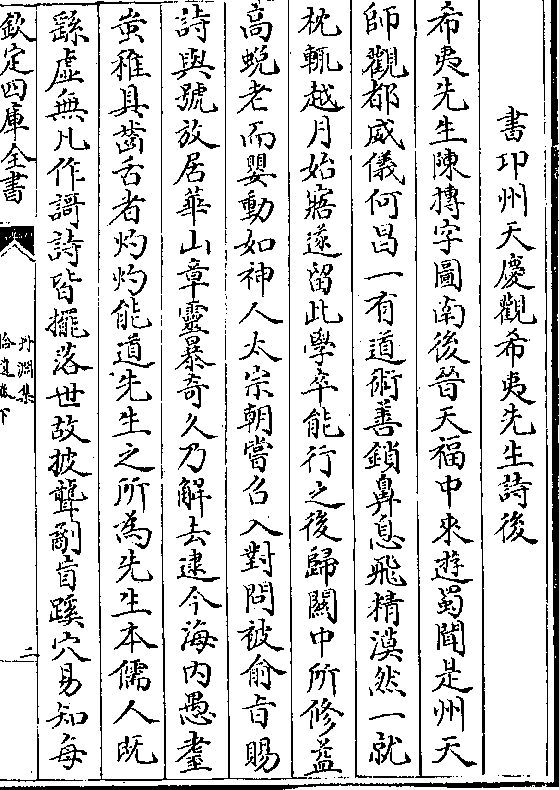 書卭州天慶觀希夷先生詩後
希夷先生陳摶字圖南後晉天福中來遊蜀聞是州天
師觀都威儀何昌一有道術善鎖鼻息飛精漠然一就
枕輒越月始寤遂留此學卒能行之後歸關中所修益
高蛻老而嬰動如神人太宗朝嘗召入對問被俞旨賜
詩與號放居華山章靈暴奇久乃解去逮今海内愚耋
黄稚具齒舌者灼灼能道先生之所為先生本儒人既
繇虛無凡作謌詩皆擺落世故披聾剮盲蹊穴易知每
欽定四庫全書
丹淵集
拾遺卷下
二